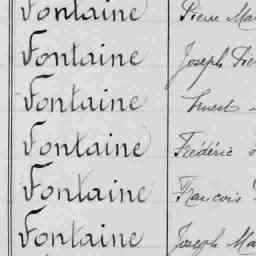 Fontaine Pierre
Fontaine Joseph
Fontaine Ernest
Fontaine Frédéric
Fontaine François
Fontaine Joseph